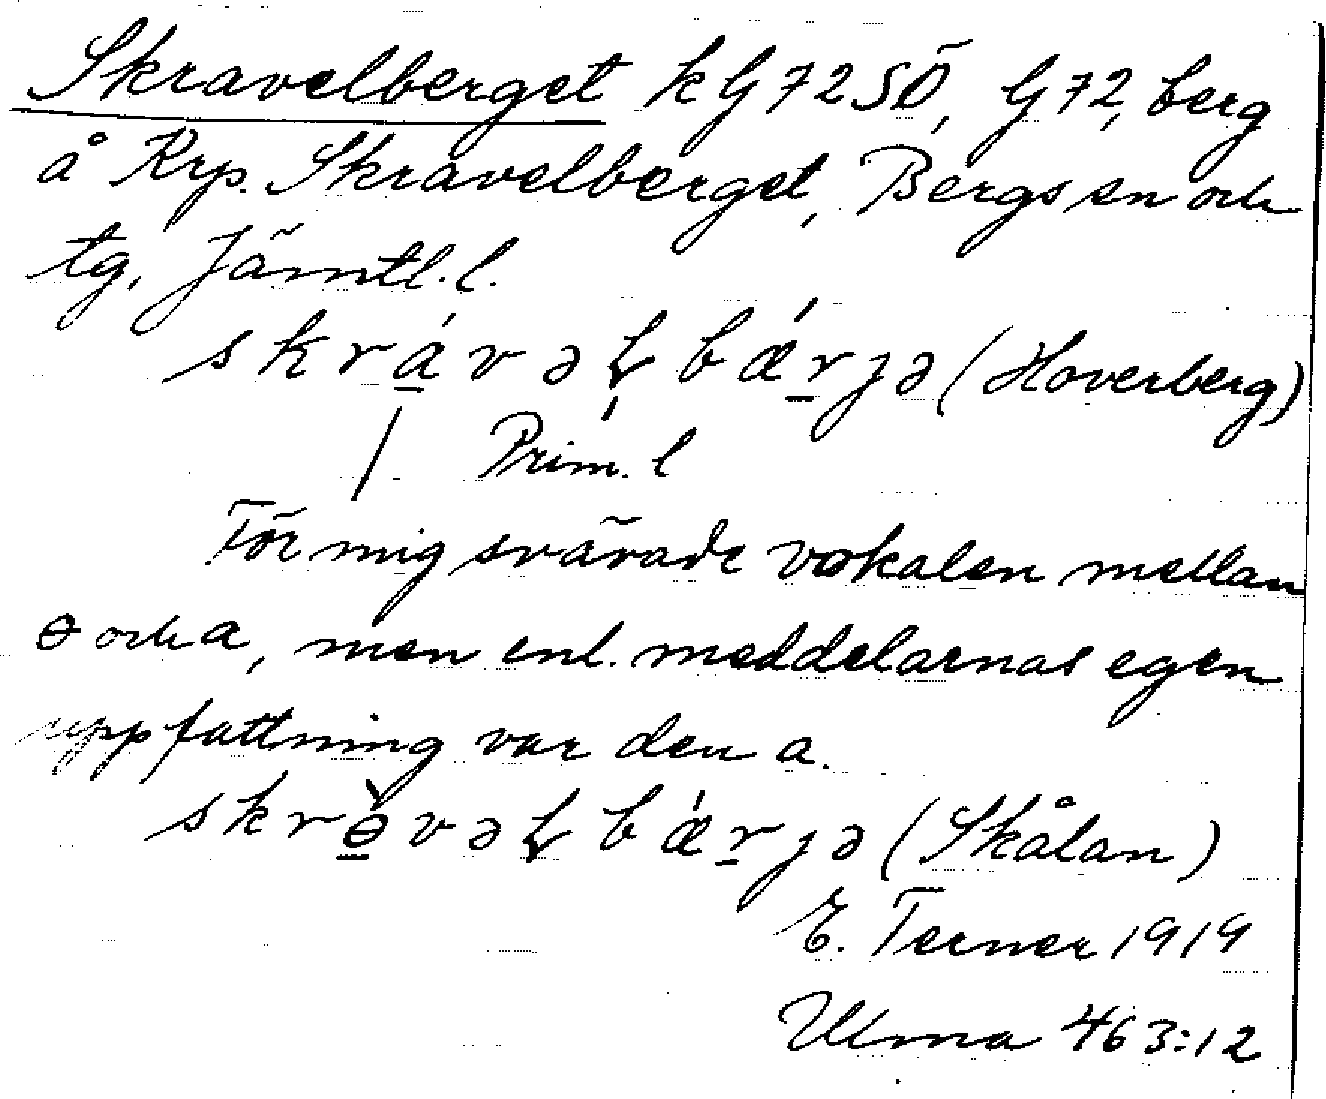 Skravelberget kG72SÖ, G72, berg
å Krp. Skravelberget, Bergs sn och
tg, Jämtl. l.
skrávəɭbǽrjə (Hoverberg)
/ Prim. l
För mig svävade vokalen mellan
ɵ och a, men enl. meddelarnas egen
uppfattning var den a.
skrɵ̀vəɭbǽrjə (Skålan)
E. Terner 1919
Ulma 463:12